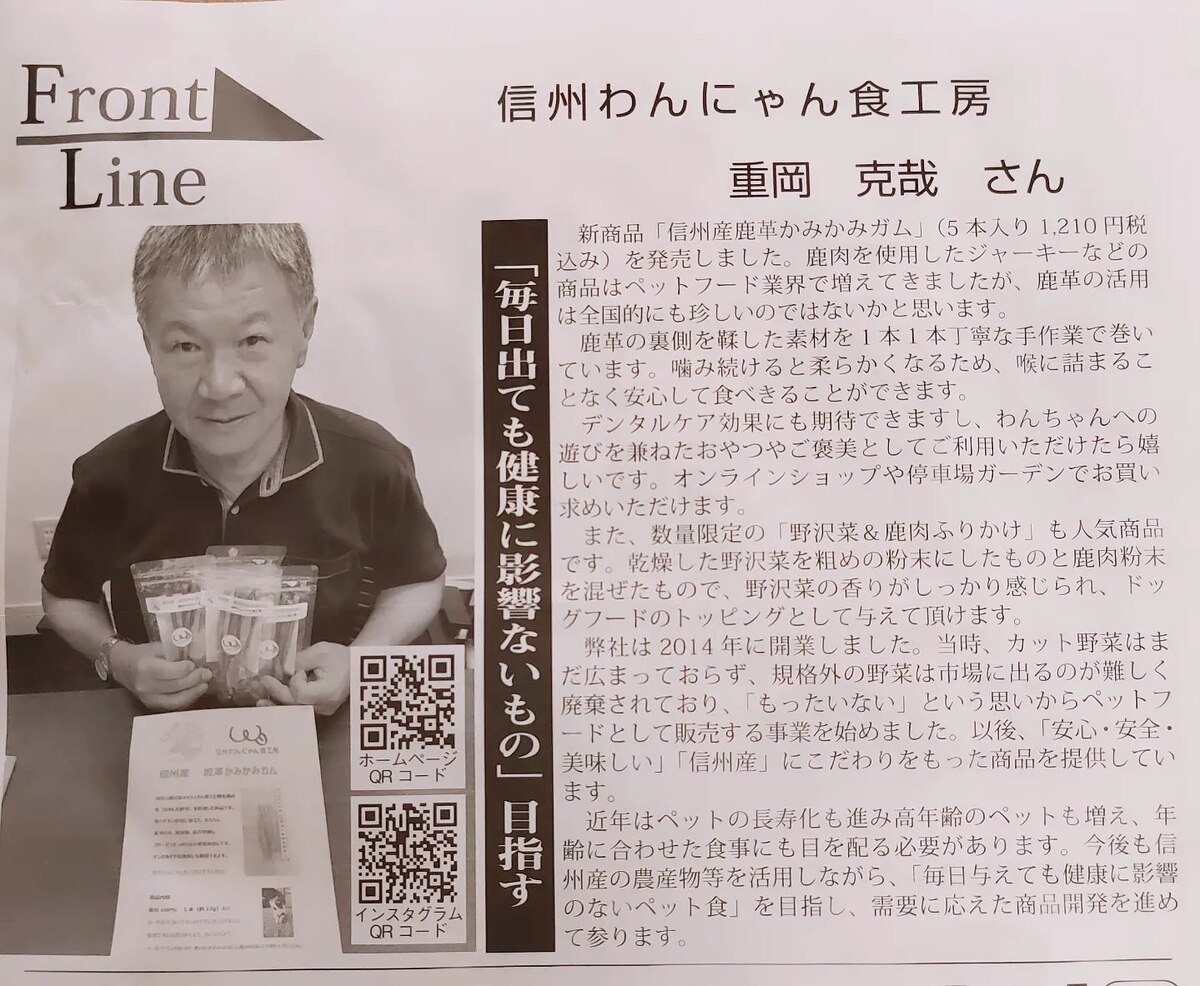 Front
Line
信州わんにゃん食工房
重岡 克哉 さん
「毎日出ても健康に影響ないもの」目指す
新商品「信州産鹿革かみかみガム」（5本入り1,210円税
込み）を発売しました。鹿肉を使用したジャーキーなどの
商品はペットフード業界で増えてきましたが、鹿革の活用
は全国的にも珍しいのではないかと思います。
鹿革の裏側を鞣した素材を1本1本丁寧な手作業で巻い
ています。噛み続けると柔らかくなるため、喉に詰まるこ
となく安心して食べきることができます。
デンタルケア効果にも期待できますし、わんちゃんへの
遊びを兼ねたおやつやご褒美としてご利用いただけたら嬉
しいです。オンラインショップや停車場ガーデンでお買い
求めいただけます。
また、数量限定の「野沢菜＆鹿肉ふりかけ」も人気商品
です。乾燥した野沢菜を粗めの粉末にしたものと鹿肉粉末
を混ぜたもので、野沢菜の香りがしっかり感じられ、ドッ
グフードのトッピングとして与えて頂けます。
弊社は2014年に開業しました。当時、カット野菜はま
だ広まっておらず、規格外の野菜は市場に出るのが難しく
廃棄されており、「もったいない」という思いからペットフ
ードとして販売する事業を始めました。以後、「安心・安全・
美味しい」「信州産」にこだわりをもった商品を提供してい
ます。
近年はペットの長寿化も進み高年齢のペットも増え、年
齢に合わせた食事にも目を配る必要があります。今後も信
州産の農産物等を活用しながら、「毎日与えても健康に影響
のないペット食」を目指し、需要に応えた商品開発を進め
て参ります。
ホームページ
QRコード
インスタグラム
QRコード
信州わんにゃん食工房
信州産 鹿革かみかみガム